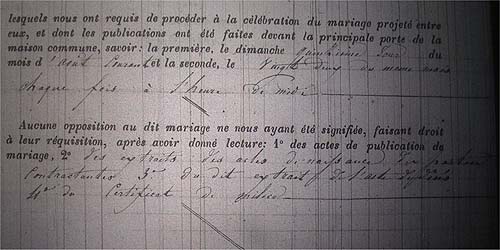 lesquels nous ont requis de procéder à la célébration du mariage projeté entre
eux, et dont les publications ont été faites devant la principale porte de la
maison commune, savoir: la première, le dimanche quinzième jour du
mois d'août courant et la seconde, le vingt deux du même mois
chaque fois à l'heure de midi
Aucune opposition au dit mariage ne nous ayant été signifiée, faisant droit
à leur réquisition, après avoir donné lecture: 1° des actes de publication de
mariage, 2° des extraits des actes de naissance des parties
contractantes 3° du dit extrait de l'acte de décès
4° du certificat de